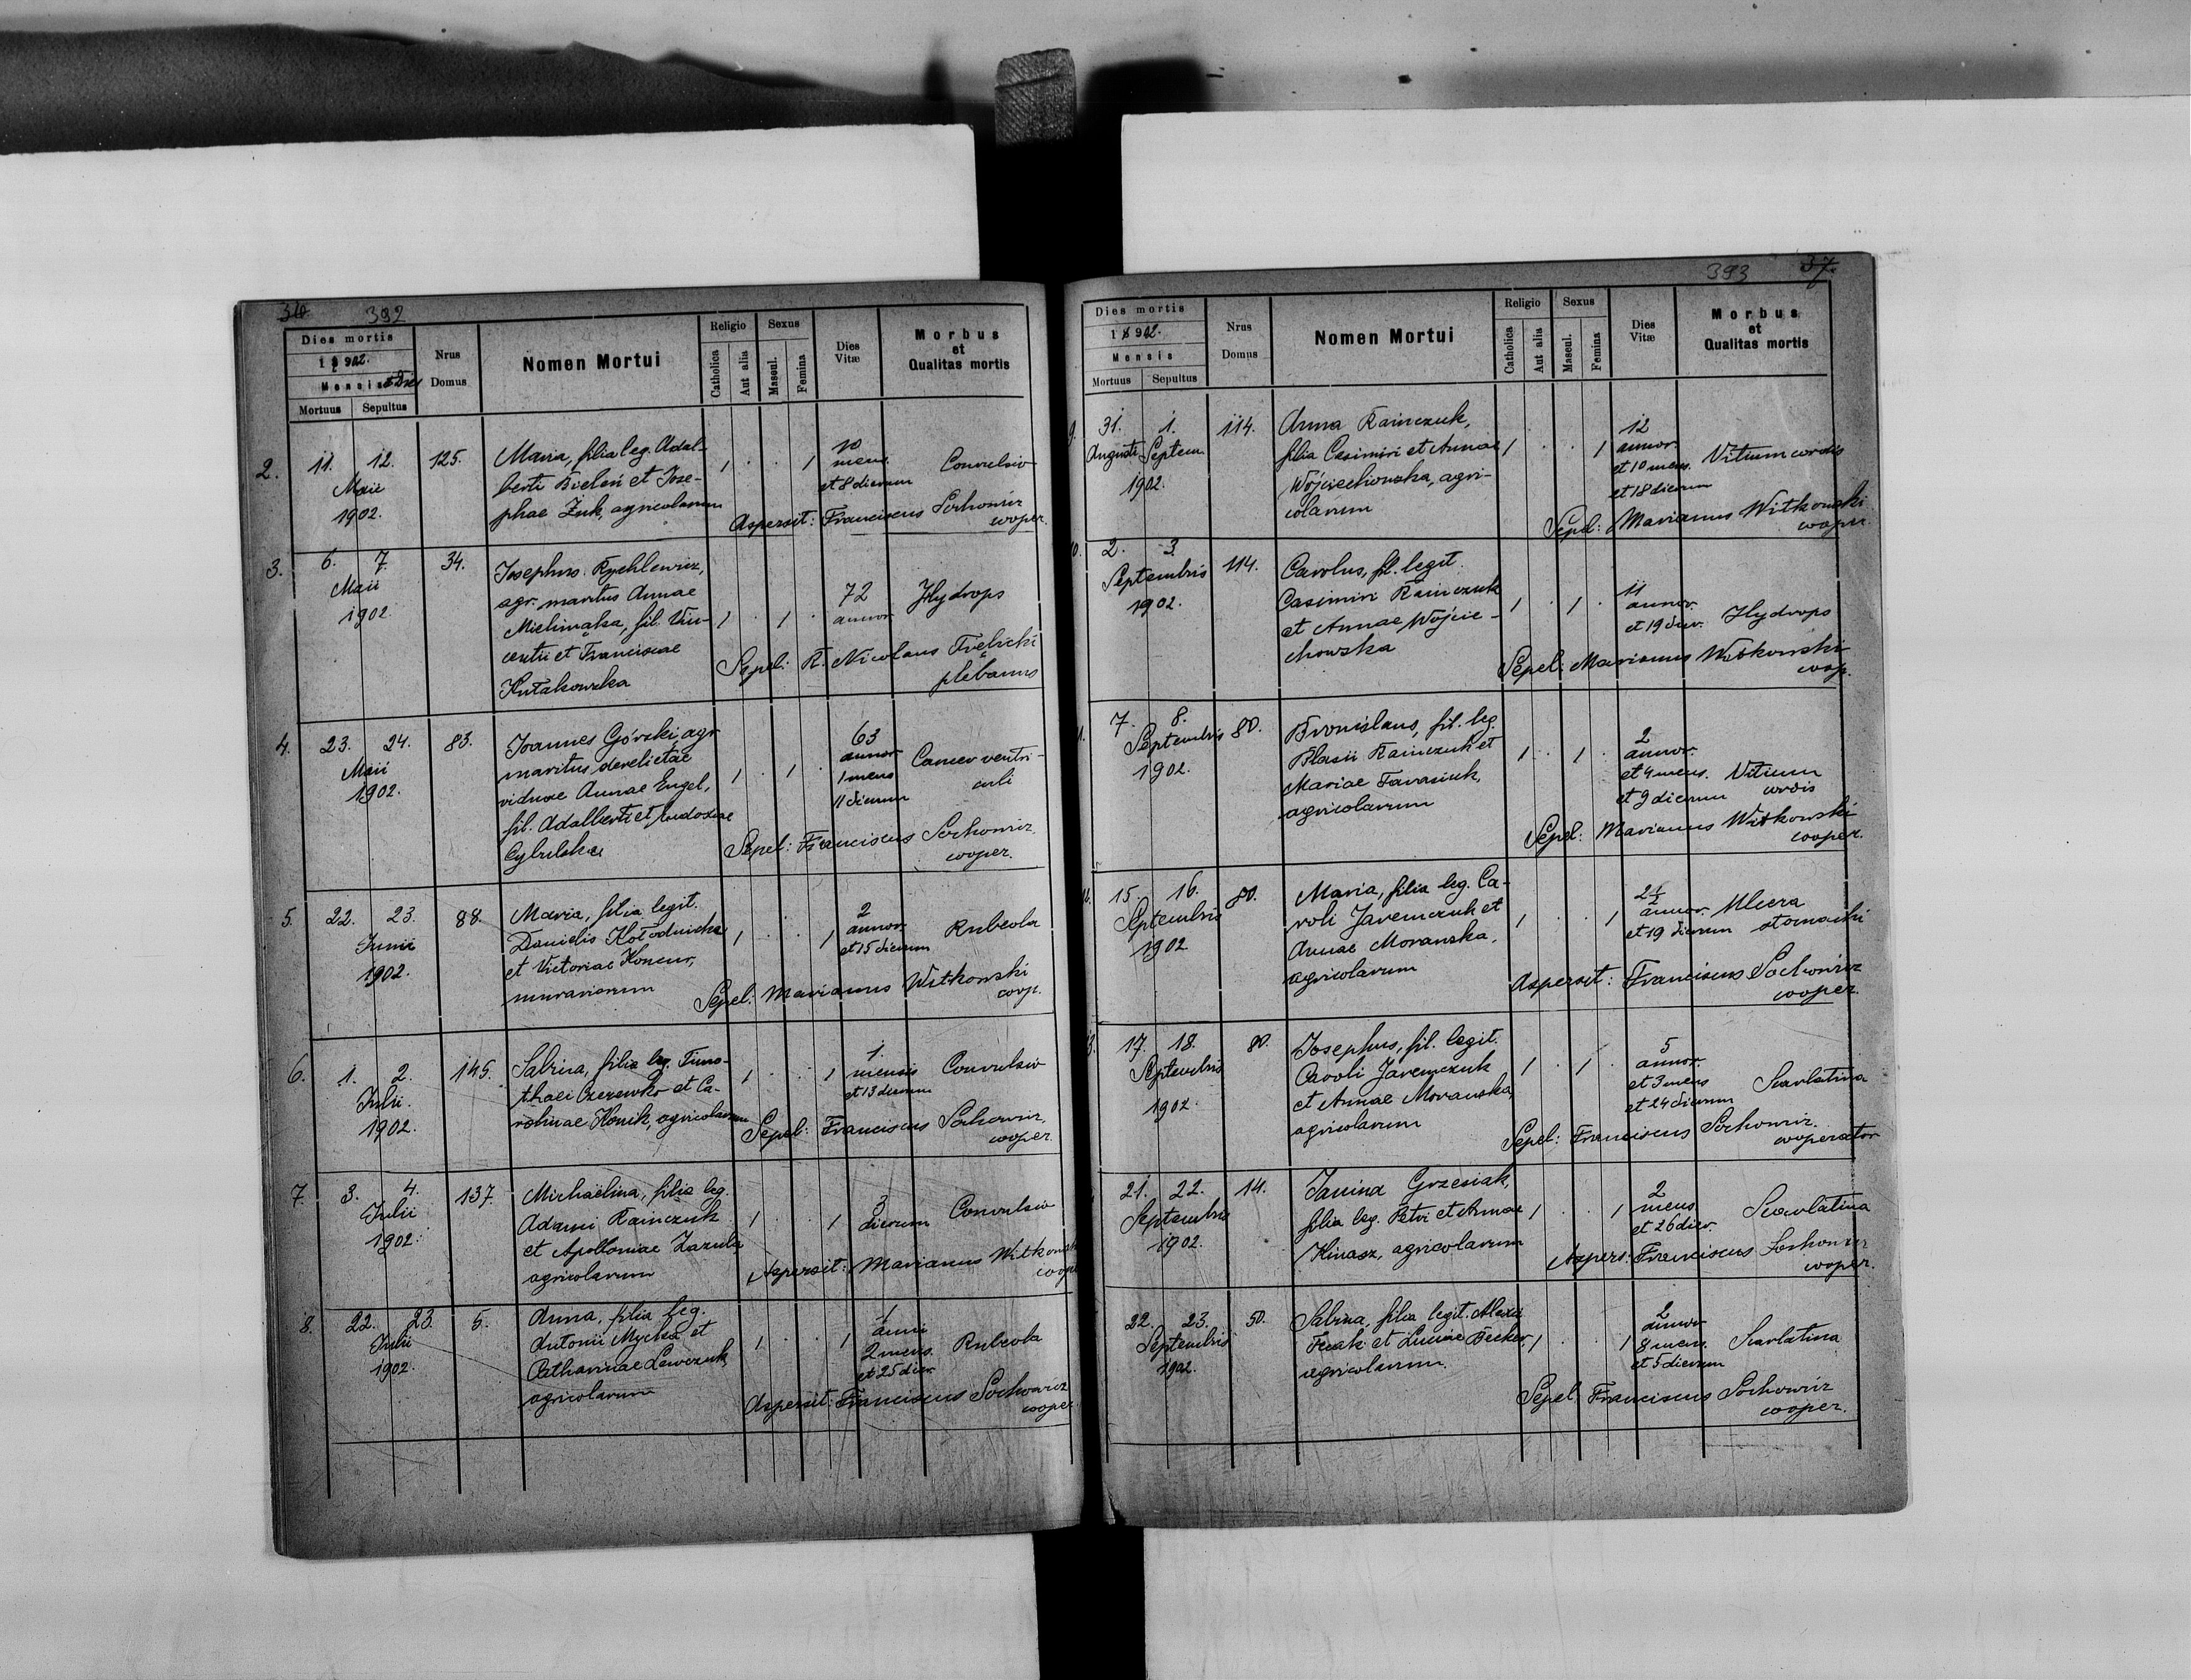 36 392
Dies mortis
1902.
Mensis et Dies
Mortuus Sepultus
Nrus Domus
Nomen Mortui
Religio
Catholica
Aut alia
Sexus
Mascul.
Femina
Dies Vitæ
Morbus
et
Qualitas mortis
2. 11. 12. 125.
Maii
1902.
Maria, filia leg. Adal-
berti Bieleń et Jose-
phae Żuk, agricolarum
1 . . 1
10
mens.
et 8 dierum
Convulsio
Aspersit: Franciscus Sochowicz
cooper.
3. 6. 7. 34.
Maii
1902
Josephus Rychlewicz,
agr. maritus Annae
fil. Vin-
centii et Franciscae
Kutakowska
1 . 1 .
72
annor.
Hydrops
Sepel: R. Nicolaus
plebanus
4. 23. 24. 83.
Maii
1902.
Joannes Górski, agr
maritus derelictae
viduae Annae Engel,
fil. Adalberti et Eudoxiae
Cybulska
1 . 1 .
63
annor
1 mens
11 dierum
Cancer ventri-
culi
Sepel: Franciscus Sochowicz
cooper.
5. 22. 23. 88.
Junii
1902.
Maria, filia legit.
Danielis Kołodnicka
et Victoriae Koncur,
murariorum
1 . . 1
2
annor.
et 15 dierum
Rubeola
Sepel: Marianus Witkowski
coop.
6. 1. 2. 145.
Julii.
1902.
Sabina, filia leg. Timo-
thaei Czerewko et Ca-
rolinae Konik, agricolarum
1 . . 1
1.
mensis
et 13 dierum
Convulsio
Sepel: Franciscus Sochowicz,
cooper.
7. 3. 4. 137.
Julii
1902.
Michaëlina, filia leg.
Adami Rainczuk
et Apolloniae Zazula
agricolarum
1 . . 1
3
dierum
Convulsio
Aspersit: Marianus Witkowski
coop
8. 22. 23. 5.
Julii
1902.
Anna, filia leg.
Antonii Mycka et
Catharinae Lewczuk,
agricolarum
1 . . 1
1
anni
2 mens.
et 25 dier.
Rubeola
Aspersit: Franciscus Sochowicz
cooper
393 37
Dies mortis
1902.
Mensis
Mortuus Sepultus
Nrus Domus
Nomen Mortui
Religio
Catholica
Aut alia
Sexus
Mascul.
Femina
Dies Vitæ
Morbus
et
Qualitas mortis
9. 31. 1. 114.
Augusti Septem.
1902.
Anna Rainczuk,
filia Casimiri et Annae
Wojciechowska, agri-
colarum
1 . . 1
12
annor.
et 10 mens.
et 18 dierum
Vitium cordis
Sepel: Marianus Witkowski
cooper
10. 2. 3. 114.
Septembris
1902.
Carolus, fil. legit.
Casimiri Rainczuk
et Annae Wojcie-
chowska
1 . 1 .
11
annor.
et 19 dier.
Hydrops
Sepel: Marianus Witkowski
coop.
7. 8. 80.
Septembris
1902.
Bronislaus, fil. leg.
Blasii Rainczuk et
Mariae Tarasiuk,
agricolarum
1 . 1 .
2
annor.
et 4 mens.
et 9 dierum
Vitium
cordis
Sepel: Marianus Witkowski
cooper.
15. 16. 80.
Septembris
1902
Maria, filia leg. Ca-
roli Jaremczuk et
Annae Moranska,
agricolarum
1 . . 1
2½
annor.
et 19 dierum
Ulcera
stomachi
Aspersit: Franciscus Sochowicz
cooper.
17. 18. 80.
Septembris
1902.
Josephus, fil. legit.
Caroli Jaremczuk
et Annae Moranska,
agricolarum
1 . 1 .
5
annor.
et 3 mens
et 24 dierum
Scarlatina
Sepel: Franciscus Sochowicz.
cooperator
21. 22. 14.
Septembris
1902.
Janina Grzesiak,
filia leg. Petri et Annae
Kinasz, agricolarum
1 . . 1
2
mens
et 26 dier.
Scarlatina
Aspers: Franciscus Sochowicz
cooper.
22. 23. 50.
Septembris
1902.
Sabina, filia legit. Alexii
et Luciae Becker,
agricolarum.
1 . . 1
2
annor
8 mens.
et 5 dierum
Scarlatina
Sepel Franciscus Sochowicz
cooper.